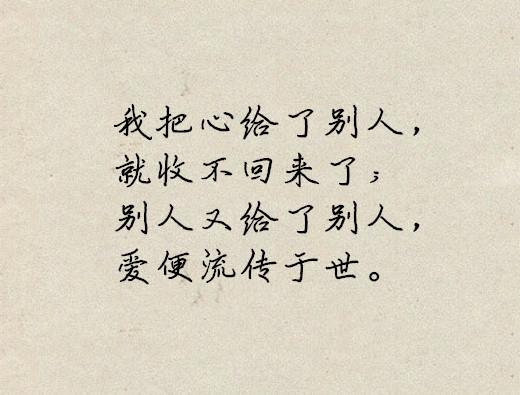 我把心给了别人，
就收不回来了；
别人又给了别人，
爱便流传于世。